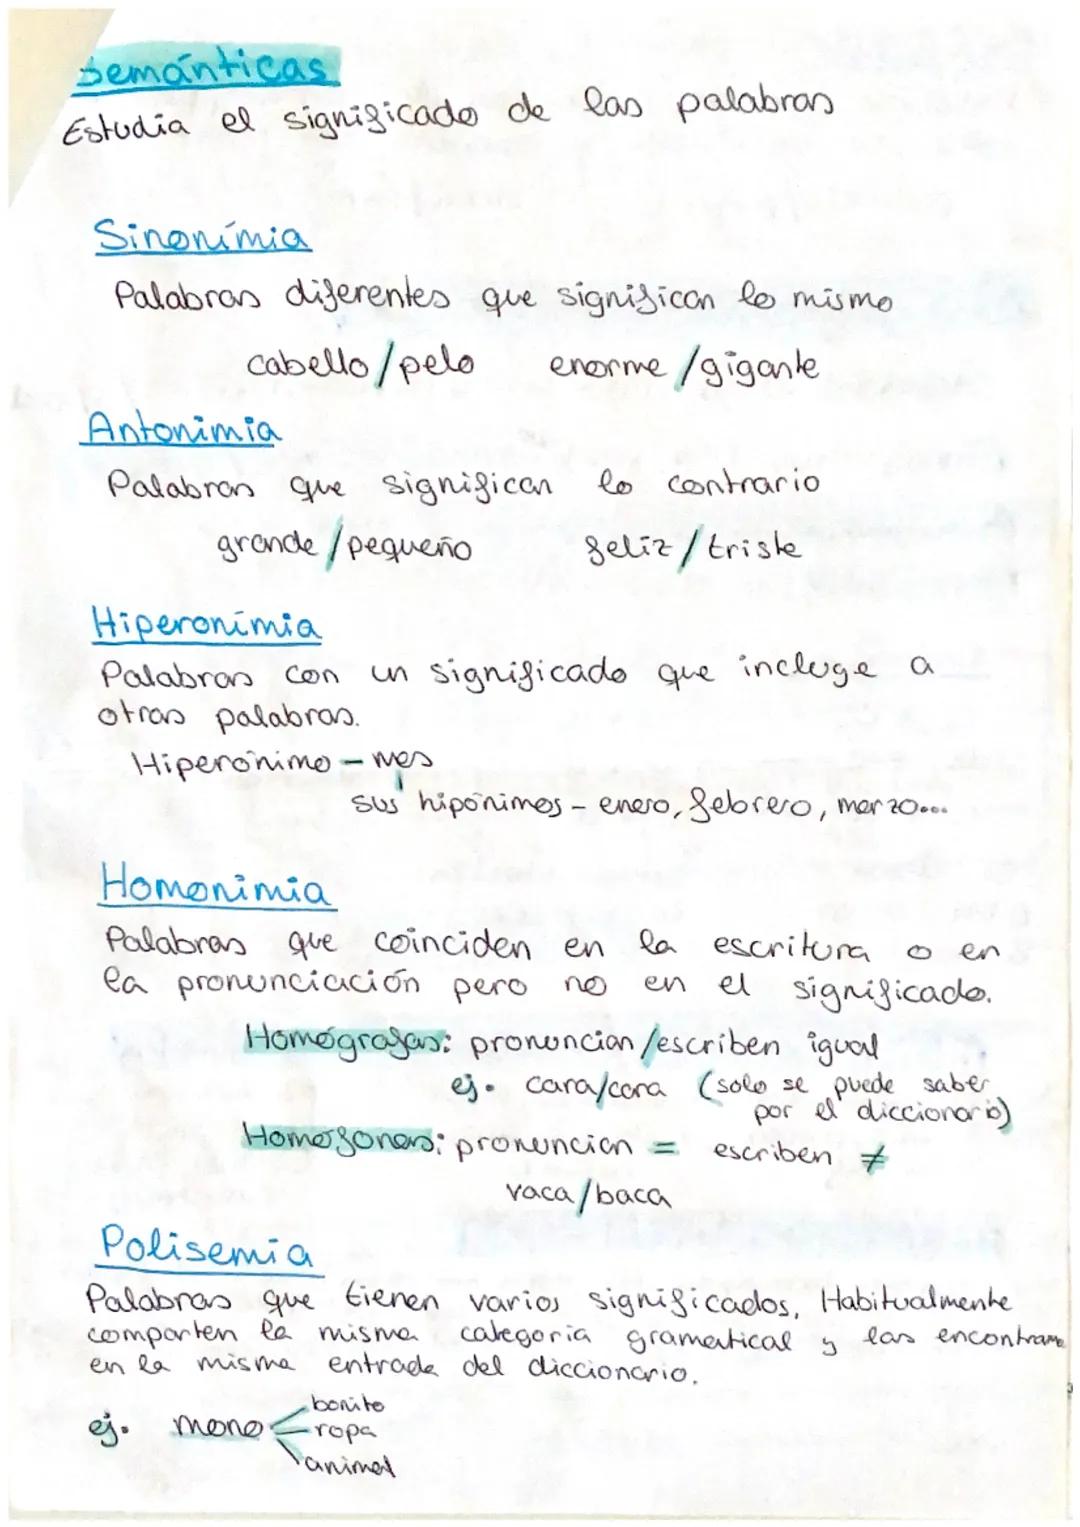 Semánticas
Estudia el significado de las palabras
Sinonímia
Palabras diferentes que significan lo mismo
cabello/pelo enorme/gigante
Antonimia
Palabras que significan lo contrario
grande/pequeño feliz/triste
Hiperonímia
Palabras con un significado que incluye a
otras palabras.
Hiperónimo - mes
sus hipónimos - enero, febrero, marzo...
Homonimia
Palabras que coinciden en la escritura o en
la pronunciación pero no en el significado.
Homógrafas: pronuncian/escriben igual
ej. cara/cara (solo se puede saber
por el diccionario)
Homófonas: pronuncian = escriben ≠
vaca/baca
Polisemia
Palabras que tienen varios significados. Habitualmente
comparten la misma categoría gramatical y las encontramo
en la misma entrada del diccionario.
bonito
ej. mono ropa
animal